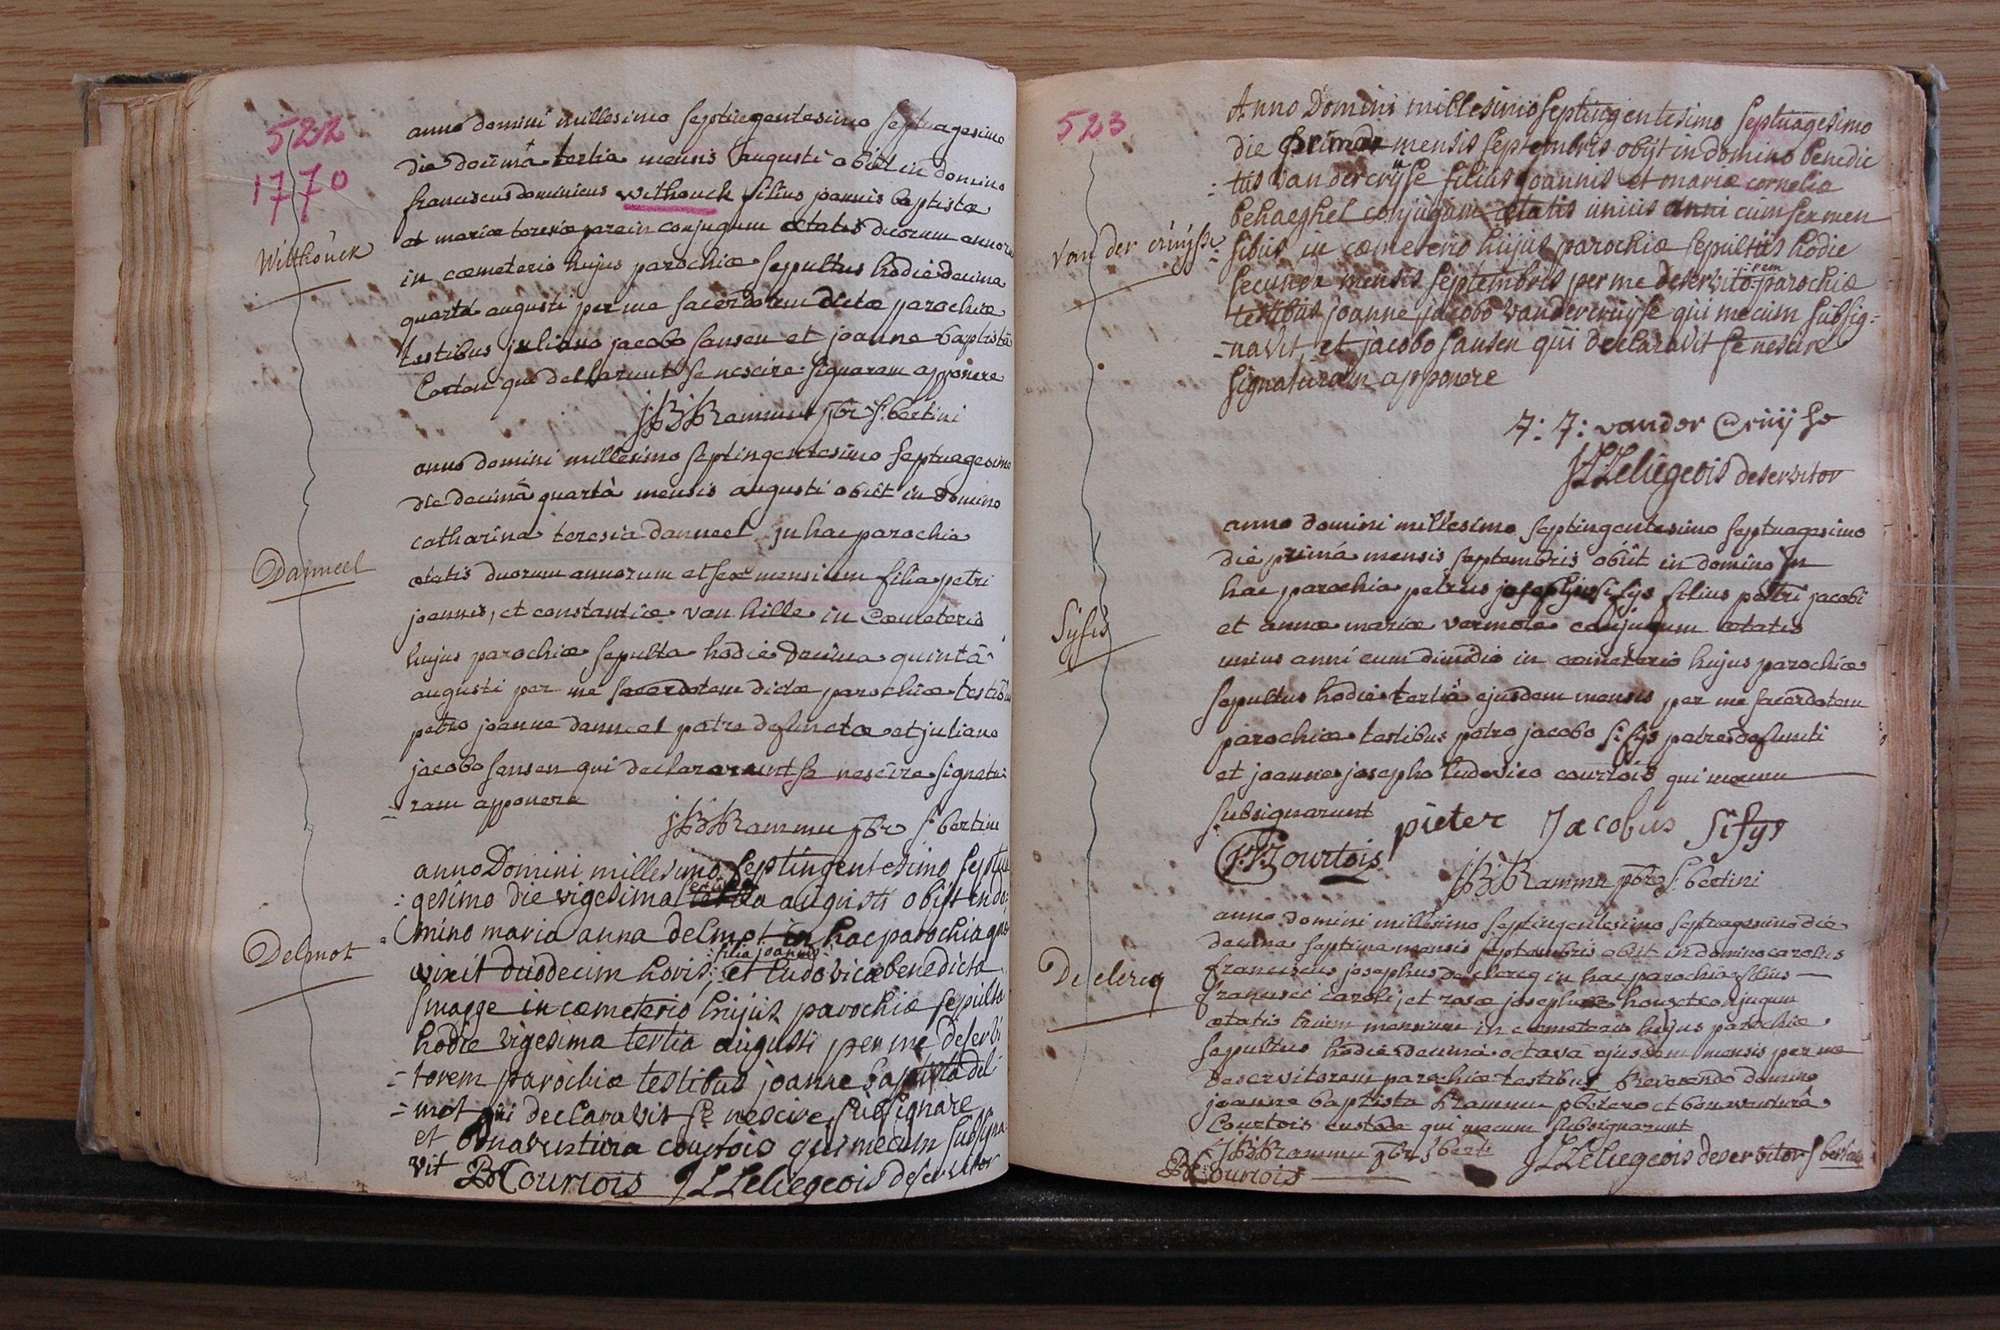 522
1770
Withouck
anno domini millesimo septingentesimo septuagesimo
die decimâ tertia mensis augusti obiit in domino
franciscus dominicus withouck filius joannis baptistæ
et mariæ teresiæ conjugum ætatis duorum annoru
in cœmeterio hujus parochiæ sepultus hodie decima
quartâ augusti per me sacerdotem dictæ parochiæ
testibus juliano jacobo sansen et joanne baptistâ
qui declararunt se nescire signaram apponere
JB Rammu pbr St bertini
Danneel
anno domini millesimo septingentesimo septuagesimo
die decimâ quartâ mensis augusti obiit in domino
catharina teresia danneel in hac parochia
ætatis duorum annorum et sex mensium filia petri
joannis, et constantiæ van hille in cœmeterio
hujus parochiæ sepulta hodie decima quintâ
augusti per me sacerdotem dictæ parochiæ testibus
petro joanne danneel patre defunctæ et juliano
jacobo sansen qui declararunt se nescire signatu
= ram apponere
JB Rammu pbr St bertini
Delmot
anno Domini millesimo septingentesimo septua
: gesimo die vigesima augusti obijt in do:
mino maria anna delmot in hac parochia quæ
: filia joannis :
vixit duodecim horis; et ludovicæ benedictæ
smagge in cœmeterio hujus parochiæ sepulta
hodie vigesima tertia augusti per me deservi
= torem parochiæ testibus joanne baptista del
= mot qui declaravit se nescire subsignare
et bonaventura courtois qui mecum subsigna
vit B Courtois JL Leliegeois deservitor
523
van der cruÿsse
Anno Domini millesimo septingentesimo septuagesimo
die prima mensis septembris obijt in domino benedic
: tus vandercruÿsse filius joannis et mariæ corneliæ
behaeghel conjugum ætatis unius anni cum sex men
sibus in cœmeterio hujus parochiæ sepultus hodie
secunda mensis septembris per me deservito:rem parochiæ
testibus joanne jacobo vandercruÿsse qui mecum subsig:
= navit, et jacobo sansen qui declaravit se nescire
signaturam apponere
J: J: vander Cruÿsse
JL Leliegeois deservitor
Sysis
anno domini millesimo septingentesimo septuagesimo
die primâ mensis septembris obiit in domino in
hac parochia petrus josephus sisys filius petri jacobi
et annæ mariæ vermote conjugum ætatis
unius anni cum dimidio in cœmeterio hujus parochiæ
sepultus hodie tertiâ ejusdem mensis per me sacerdotem
parochiæ testibus petro jacobo sisys patre defuncti
et joanne josepho ludovico courtois qui mecum
subsignarunt pieter Jacobus Sisys
Courtois
JB Rammu pbr St bertini
De clercq
anno domini millesimo septingentesimo septuagesimo die
decima septima mensis septembris obiit in domino carolus
franciscus josephus de clercq in hac parochia filius
francisci caroli, et rosæ josephinæ conjugum
ætatis trium mensium in cœmeterio hujus parochiæ
sepultus hodie decimâ octavâ ejusdem mensis per me
deservitorem parochiæ testibus Reverendo domino
joanne baptista Rammu pbstero et bonaventurâ
Courtois custode qui mecum subsignarunt
JB Rammu pbr St berti
JL Leliegeois deservitor St bertini
B Courtois